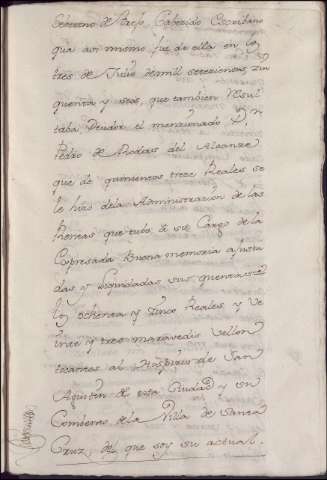 Gobierno de Dicho Cabezido Escribano
que asi mismo fue de ella en los
tres de Julio de mil setecientos, zin
quenta y seis, que tambien Resul
taba, Deudor el menzionado Dn
Pedro de Rodas del Alcanze
que de quinientos trece Reales se
le hizo dela Administrazion de las
Rentas que tubo à su Cargo de la
Expresada Buena memoria ajusta
das, y liquidadas sus quentas en
los ochenta y cinco Reales y Ve
inte y tres maravedis Vellon
tocantes al Hospizio de San
Agustin de esta Ciudad y su
Combento de la Villa de Santa
Cruz, de que soy su actual.